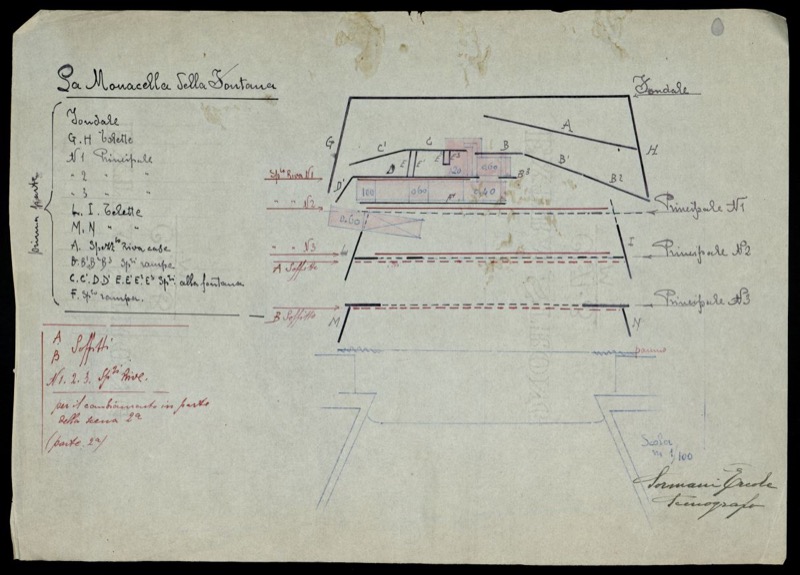 La Monacella della Fontana
Fondale
G. H Telette
N1 Principale
" 2 " "
" 3 " "
L. I. Telette
M. N "
A. Spezz.to Riva, case
B. B¹ B² B³ Sp.ti rampe
C. C' D. D' E. E' E² E³ Sp.ti alla fontana
F. Sp.to rampa.
prima parte
A
B Soffitti
N1. 2. 3. Sp.ti Rive.
per il cambiamento in parte
della scena 2ª
(parte 2ª)
Fondale
A
G
C'
C
B
B'
B2
H
D
D'
E
E'
E
E³
120
0.60
B³
100
0.60
0.40
0.60
Sp.to Riva N1
" " N2
" " N3
A Soffitto
B Soffitto
L
I
M
N
Principale N1
Principale N2
Principale N3
Scala
1/100
Sormani Ercole
Scenografo